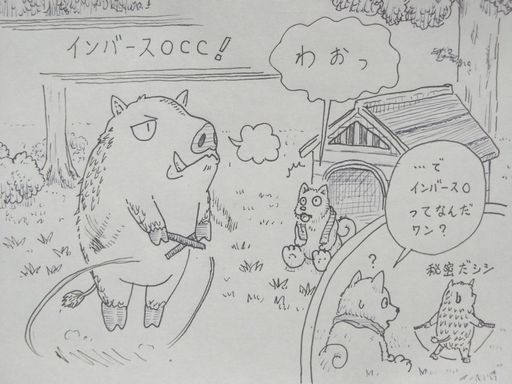 インバースOCC!
わおっ
…で
インバースO
ってなんだ
ワン?
?
秘密だシシ